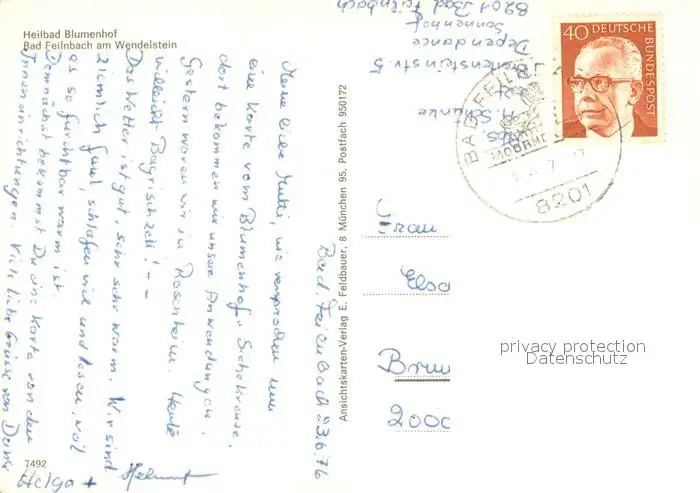 Heilbad Blumenhof
Bad Feilnbach am Wendelstein
Bad Feilnbach 23.6.76
Meine liebe Mutti, wie versprochen nun
eine Karte vom Blumenhof. Siehe Kreuze,
dort bekommen wir unsere Anwendungen.
Gestern waren wir in Rosenheim. Heute
vielleicht Bayrischzell! --
Das Wetter ist gut, sehr sehr warm. Wir sind
ziemlich faul, schlafen viel und lesen, weil
es so furchtbar warm ist.
Demnächst bekommst Du eine Karte von den
Inneneinrichtungen. Viele liebe Grüsse von Deiner
Helga + Helmut
7492
Ansichtskarten-Verlag E. Feldbauer, 8 München 95, Postfach 950172
Abs
H. Schunke
Dependance
Sonnenhof
8201 Bad Feilnbach
40 DEUTSCHE
BUNDESPOST
BAD FEILN
8201
Frau
Elsa
2000
privacy protection
Datenschutz